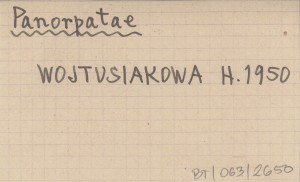 Panorpatae
WOJTUSIAKOWA H. 1950
BT/063/2650